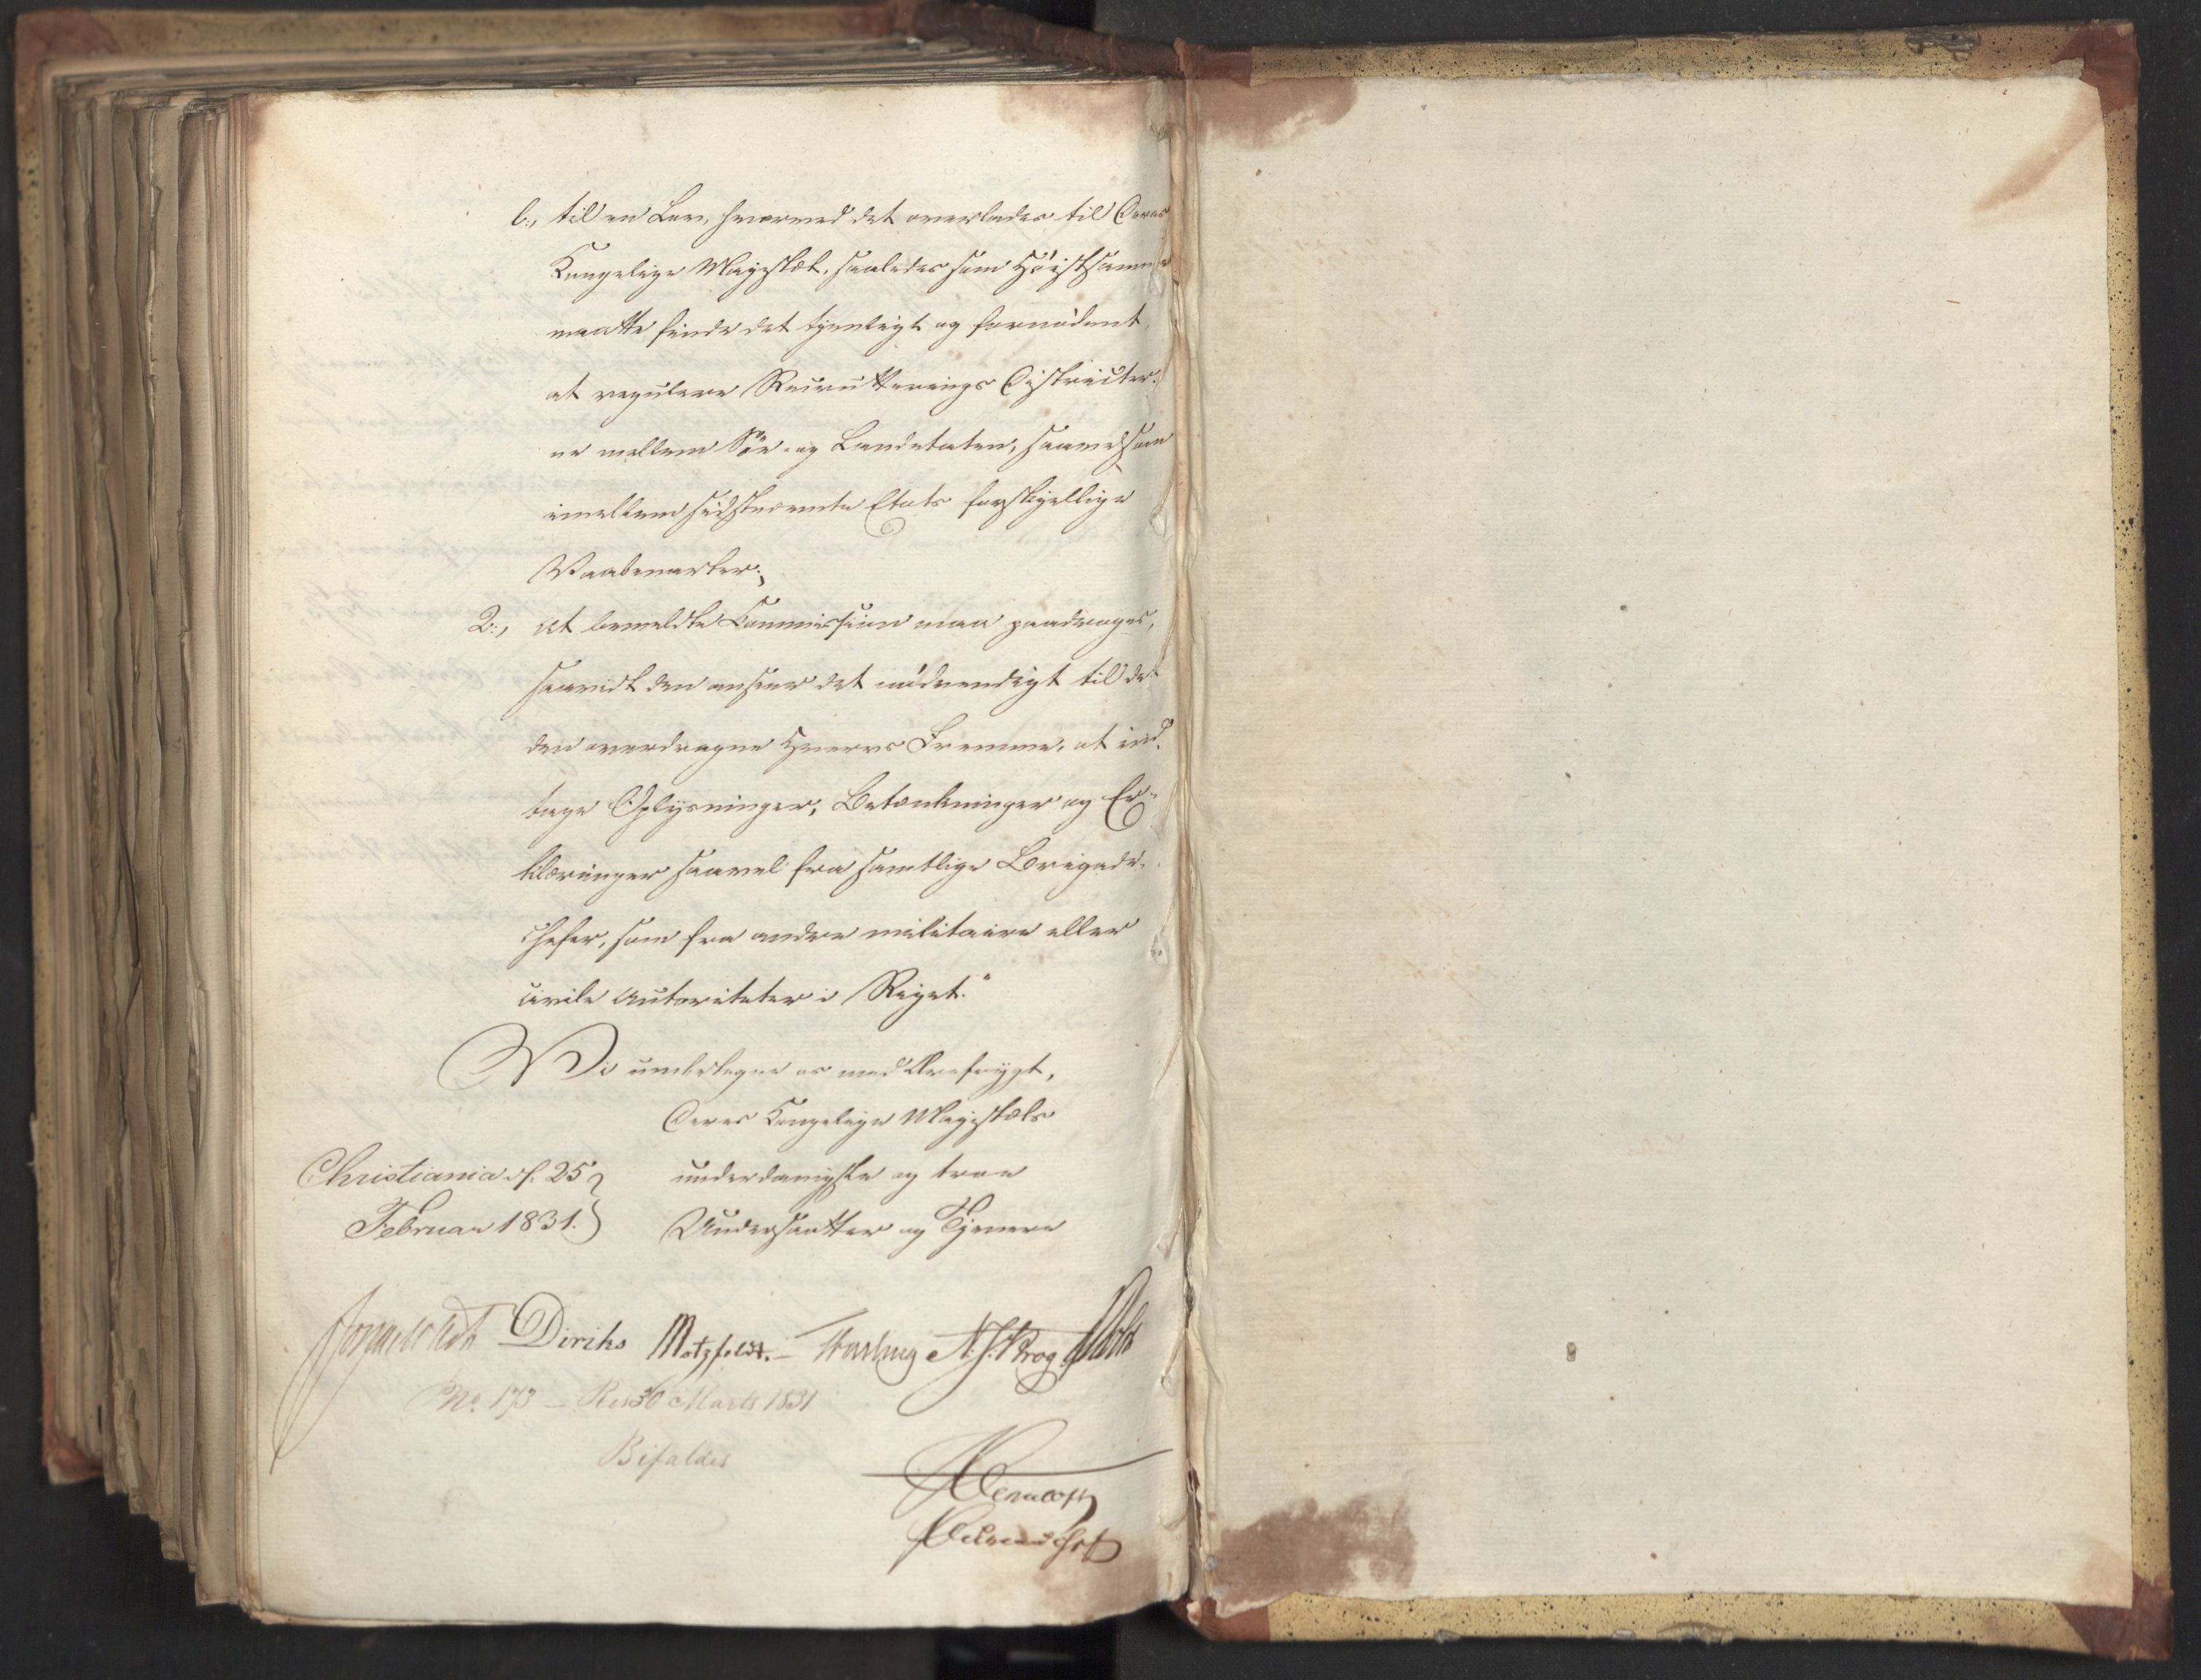 b., til en Lov, hvorved det overlades til Deres
Kongelige Majestæt, saaledes som Høistsamme
maatte finde det tjenligt og fornødent,
at regulere Recrutterings Districter-
ne mellem Søe- og Landetaten, saavelsom
imellem sidstnævnte Etats forskjellige
Vaabenarter;
2., at bemeldte Commission maa paadrages,
saavidt den anseer det nødvendigt til det
den overdragne Hvervs Fremme, at ind-
tage Oplysninger, Betænkninger og Er-
klæringer saavel fra samtlige Brigade-
chefer, som fra andre militaire eller
civile Autoriteter i Riget."
Vi undertegne os med Ærefrygt,
Deres Kongelige Majestæts
Christiania d. 25 underdanigste og troe
Februar 1831. Undersaatter og Tjenere
Diriks Motzfeldt. N. J. Krog
No. 173 – Res 30 Marts 1831
Bifaldes